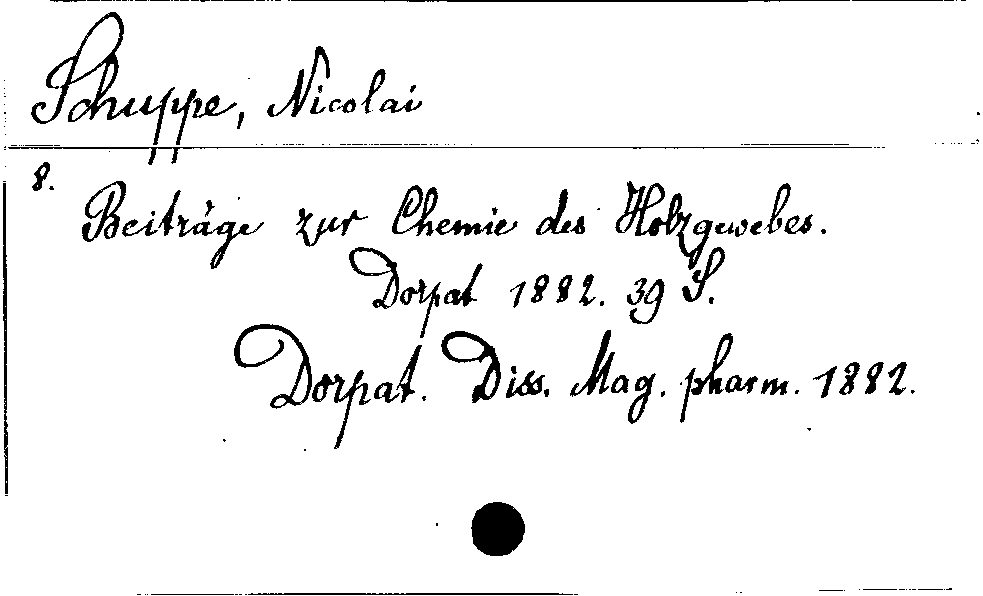 Schuppe, Nicolai
8.
Beiträge zur Chemie des Holzgewebes.
Dorpat 1882. 39 S.
Dorpat. Diss. Mag. pharm. 1882.